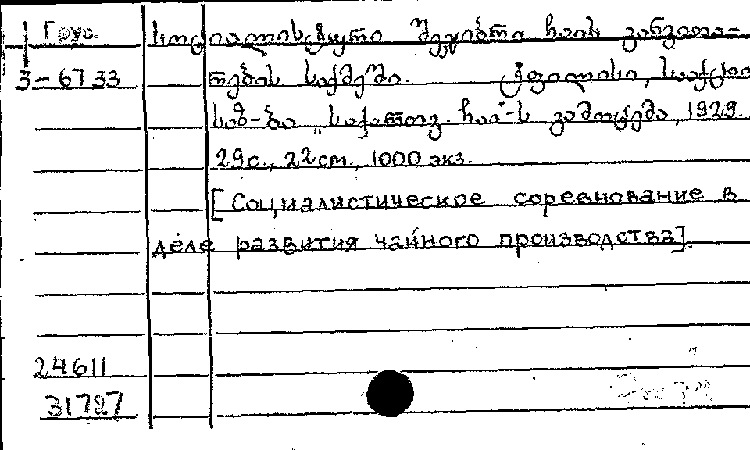 Груз. სოციალისტური შეჯიბრი ჩაის განვითა-
3-6733 რების საქმეში. ტფილისი, საქ
სტ-ბა „საქართვ. ჩაი"-ს გამოცემა, 1929.
29с., 22см., 1000 экз.
[Социалистическое соревнование в
деле развития чайного производства].
24611
31727